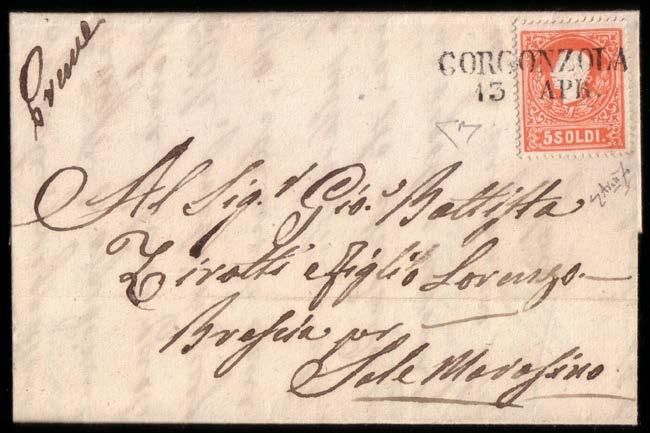 GORGONZOLA
13 APR.
5 SOLDI.
Al Sig.r Gio. Battista
Zirotti e figlio Lorenzo
Brescia per
Sale Marasino